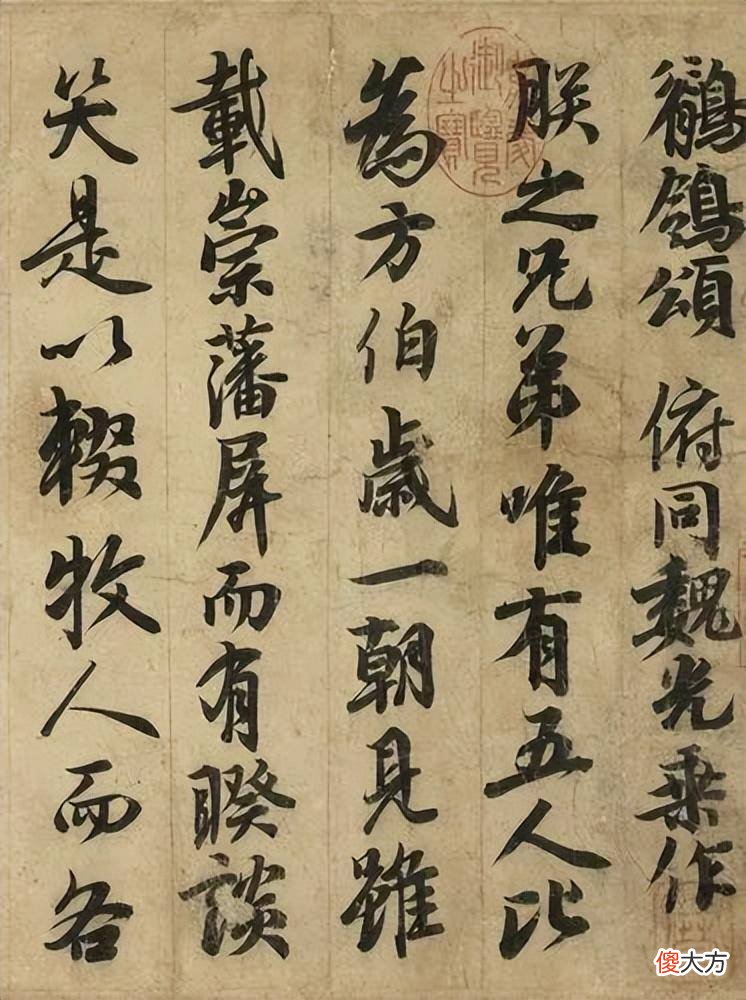 鶺鴒頌 俯同魏光乘作
朕之兄弟唯有五人比
為方伯歲一朝見雖
載崇藩屏而有睽談
笑是以輟牧人而各
御覽之寶
傻大方